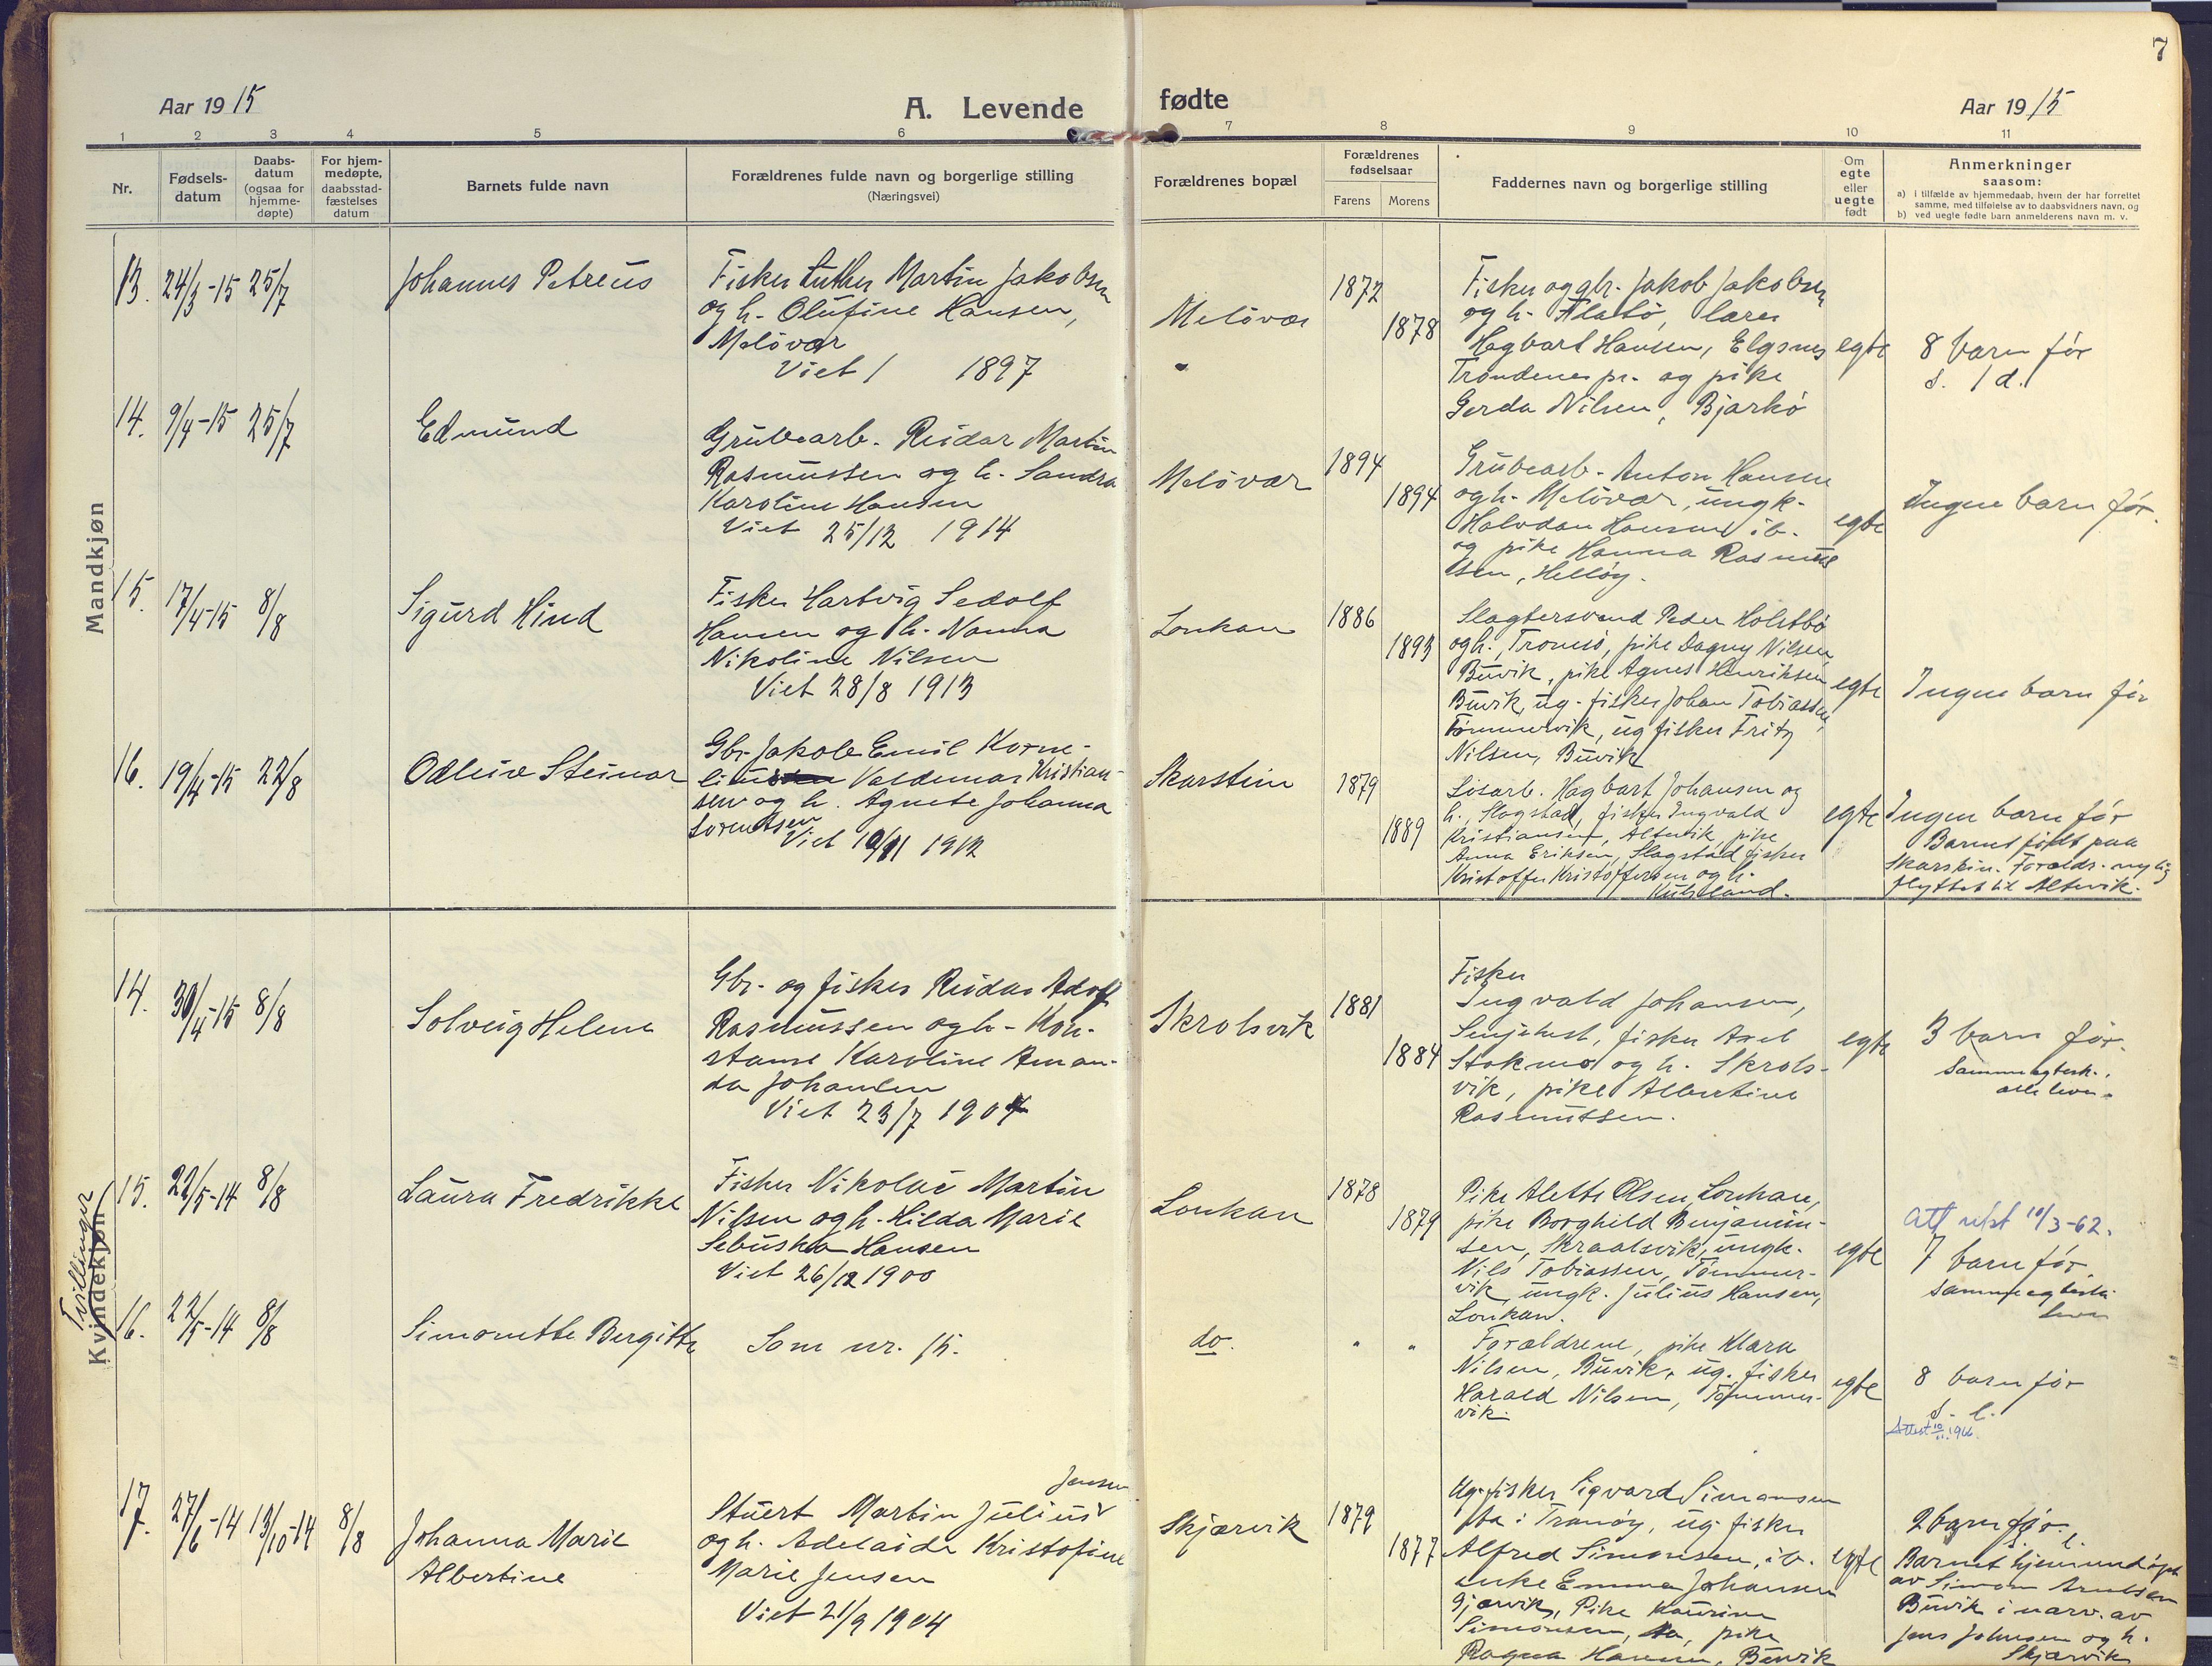 7
Aar 1915
A. Levende fødte
Aar 1915
1 2 3 4 5 6 7 8 9 10 11
Nr.
Fødsels-
datum
Daabs-
datum
(ogsaa for
hjemme-
døpte)
For hjem-
medøpte,
daabsstad-
fæstelses
datum
Barnets fulde navn
Forældrenes fulde navn og borgerlige stilling
(Næringsvei)
Forældrenes bopæl
Forældrenes
fødselsaar
Farens Morens
Faddernes navn og borgerlige stilling
Om
egte
eller
uegte
født
Anmerkninger
saasom:
a) i tilfælde av hjemmedaab, hvem der har forrettet
samme, med tilføielse av to daabsvidners navn, og
b) ved uegte fødte barn anmelderens navn m. v.
Mandkjøn
13. 24/3-15 25/7
Johannes Petreus
Fisker Luther Martin Jakobsen
og h. Olufine Hansen,
Meløvær
Viet / 1897
Meløvær
"
1872
1878
Fisker og gbr. Jakob Jakobsen
og h. Flatø, lærer
Hagbart Hansen, Elgsnes
Trondenes pr. og pike
Gerda Nilsen, Bjarkö
egte
8 barn før
s. 1 d.
14. 9/4-15 25/7
Edmund
Grubearb. Reidar Martin
Rasmussen og h. Sandra
Karoline Hansen
Viet 25/12 1914
Meløvær
1894
1894
Grubearb. Anton Hansen
og h. Meløvær, ungk.
Halvdan Hansen ib.
og pike Hanna Rasmus
sen, Helløy.
egte
Ingen barn før.
15. 17/4-15 8/8
Sigurd Hind
Fisker Hartvig Sedolf
Hansen og h. Nanna
Nikoline Nilsen
Viet 28/8 1913
Lonkan
1886
1893
Slagtersvend Peder Holstbö
og h., Tromsö, pike Dagny Nilsen,
Buvik, pike Agnes Henriksen
Buvik, ug. fisker Johan Tobiassen,
Tømmervik, ug fisker Fritz
Nilsen, Buvik
egte
Ingen barn før
16. 19/4-15 22/8
Odleiv Steinar
Gbr. Jakob Emil Korne-
lius Valdemar Kristian-
sen og h. Agnete Johanna
Lorentsen
Viet 10/11 1912
Skarstein
1879
1889
Løsarb. Hagbart Johansen og
h., Slagstad, fisker Ingvald
Kristiansen, Altevik, pike
Anna Eriksen, Slagstad fisker
Kristoffer Kristoffersen og h.
egte
Ingen barn før
Barnet født paa
Skarstein. Forældr. nylig
flyttet til Altevik.
Kvindekjøn
14. 30/4-15 8/8
Solveig Helene
Gbr. og fisker Reidar Adolf
Rasmussen og h. Kon-
stanse Karoline Aman-
da Johansen
Viet 23/7 1904
Skrolsvik
1881
1884
Fisker
Ingvald Johansen,
Senjehest, fisker Axel
Stokmo og h. Skrols-
vik, pike Albertine
Rasmussen.
egte
3 barn før.
Samme egtesk.,
alle lever.
Tvillinger
15. 22/5-14 8/8
Laura Fredrikke
Fisker Nikolai Martin
Nilsen og h. Hilda Marie
Sebuska Hansen
Viet 26/12 1900
Lonkan
1878
1879
Pike Alette Olsen, Lonkan,
pike Borghild Benjamin-
sen, Skraalsvik, ungk.
Nils Tobiassen, Tømmer-
vik, ungk. Julius Hansen,
Lonkan.
egte
Att utst 10/3-62.
7 barn før,
samme egtesk.
lever
16. 22/5-14 8/8
Simonette Bergitte
Som nr. 15.
do.
" "
Forældrene, pike Klara
Nilsen, Buvik, ug. fisker
Harald Nilsen, Tømmer-
vik.
egte
8 barn før
s. l.
17. 27/6-14 13/10-14 8/8
Johanna Marie
Albertine
Jensen
Stuert Martin Julius
og h. Adelaide Kristofine
Marie Jensen
Viet 21/9 1904
Skjærvik
1879
1877
Ug. fisker Sigvard Simonsen
sta i Tranöy, ug. fisker
Alfred Simonsen, ib.
enke Emma Johansen
Gjærvik, Pike Kaurine
Simonsen, pike
Ragna Hansen, Buvik
egte
2 barn før.
s. l.
Barnet hjemmedøpt
av Simon Arntsen
Buvik i nærv. av
Jens Johnsen og h.
Skjærvik